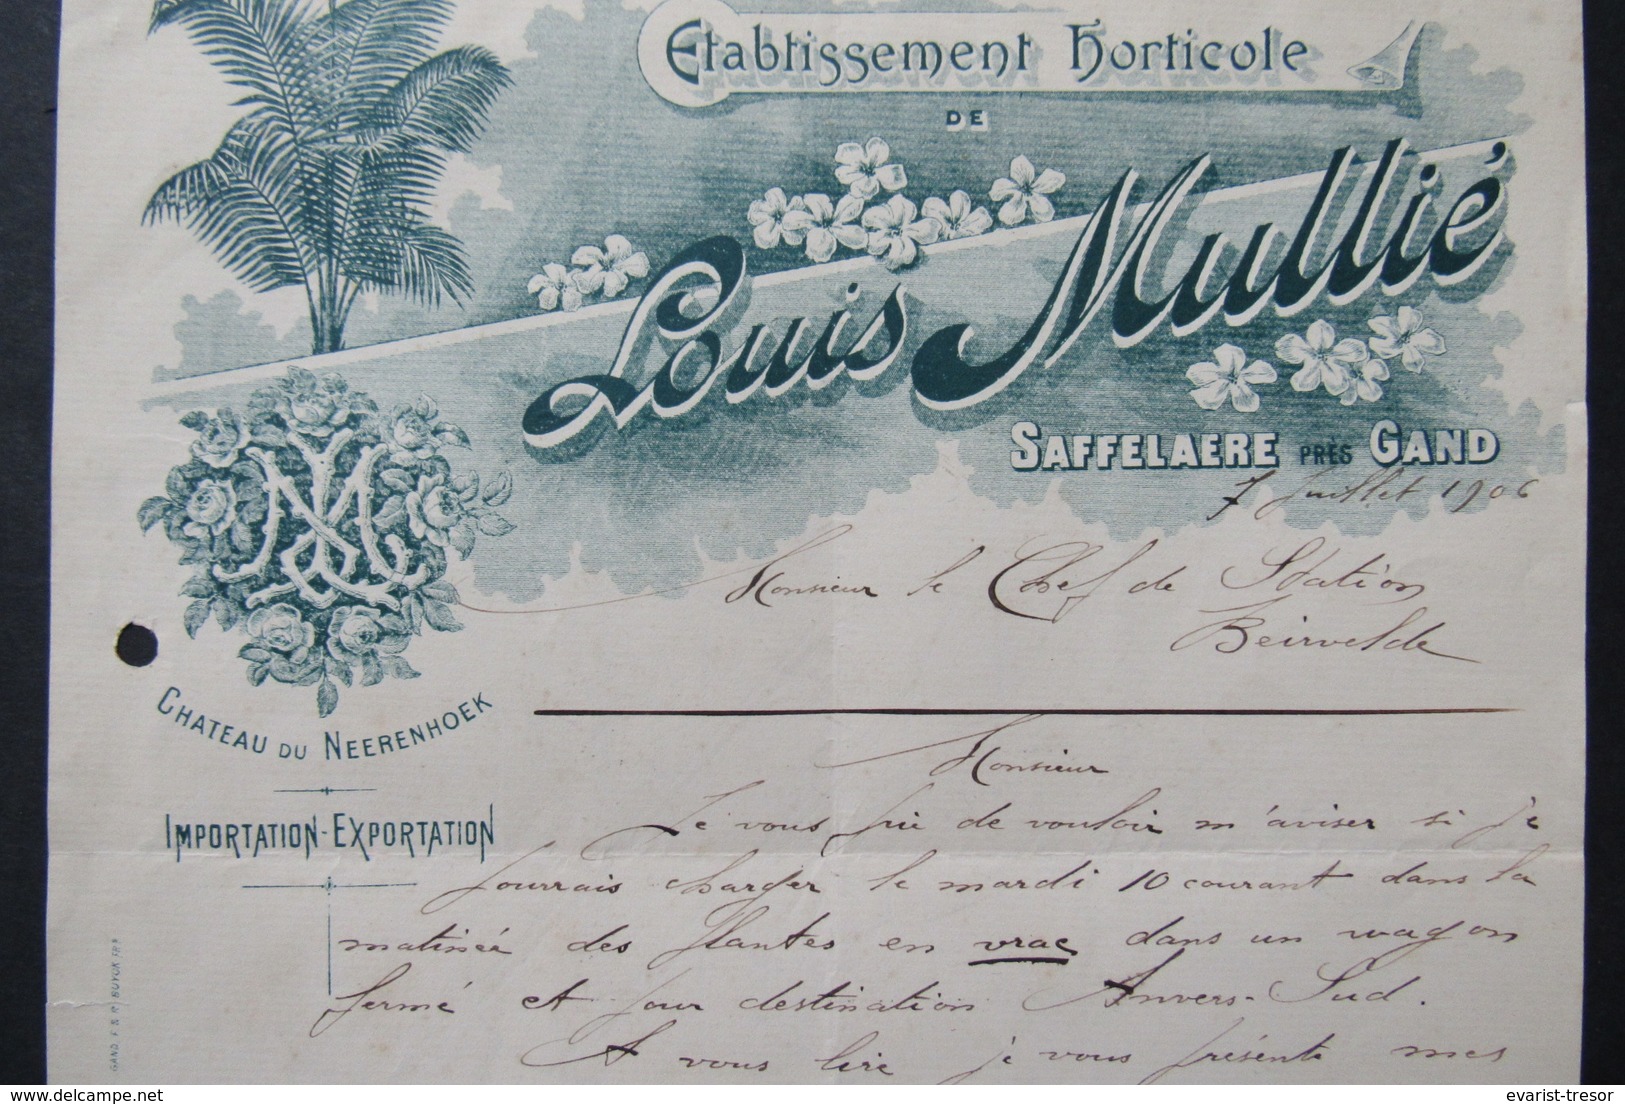 Etablissement Horticole
DE
Louis Mullié
SAFFELAERE PRÈS GAND
7 Juillet 1906
Monsieur le Chef de Station
Beirvelde
CHATEAU DU NEERENHOEK
IMPORTATION-EXPORTATION
Monsieur
Je vous prie de vouloir m'aviser si je
pourrais charger le mardi 10 courant dans la
matinée des plantes en vrac dans un wagon
fermé et pour destination Anvers-Sud.
A vous lire je vous présente mes
GAND. F. & R. BUYCK FRS
evarist-tresor